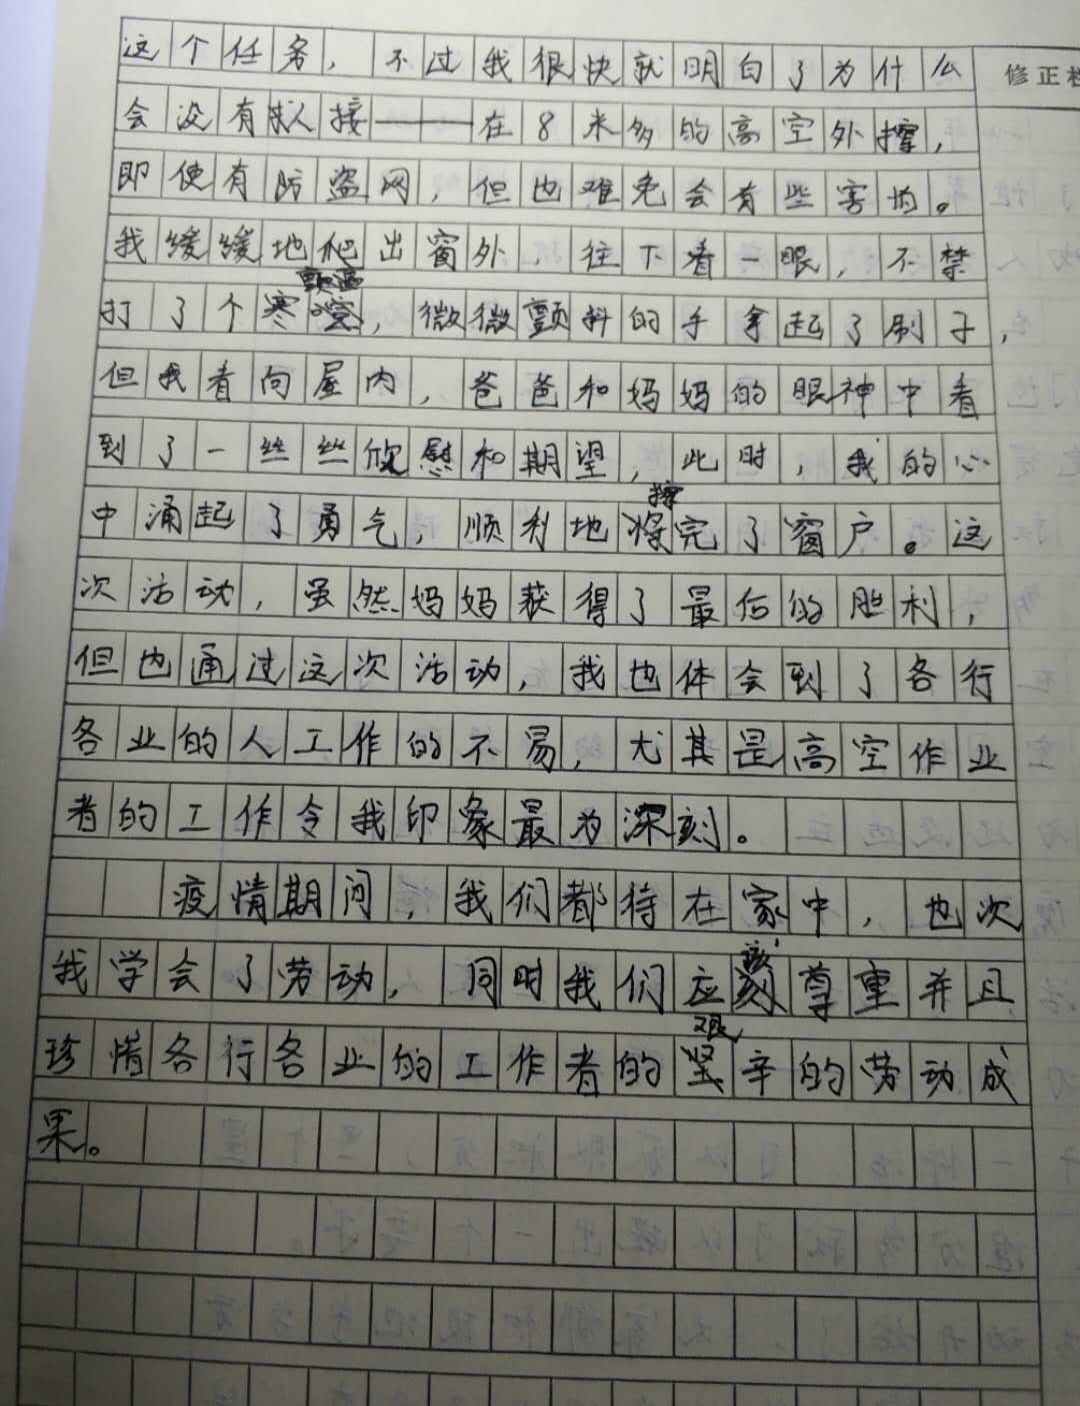 这个任务，不过我很快就明白了为什么
修正栏
会没有人接——在8米多的高空外擦，
即使有防盗网，但也难免会有些害怕。
我缓缓地爬出窗外，往下看一眼，不禁
打了个寒颤，微微颤抖的手拿起了刷子，
但我看向屋内，爸爸和妈妈的眼神中看
到了一丝丝欣慰和期望，此时，我的心
中涌起了勇气，顺利地擦完了窗户。这
次活动，虽然妈妈获得了最后的胜利，
但也通过这次活动，我也体会到了各行
各业的人工作的不易，尤其是高空作业
者的工作令我印象最为深刻。
疫情期间，我们都待在家中，也次
我学会了劳动，同时我们应该尊重并且
珍惜各行各业的工作者的艰辛的劳动成
果。